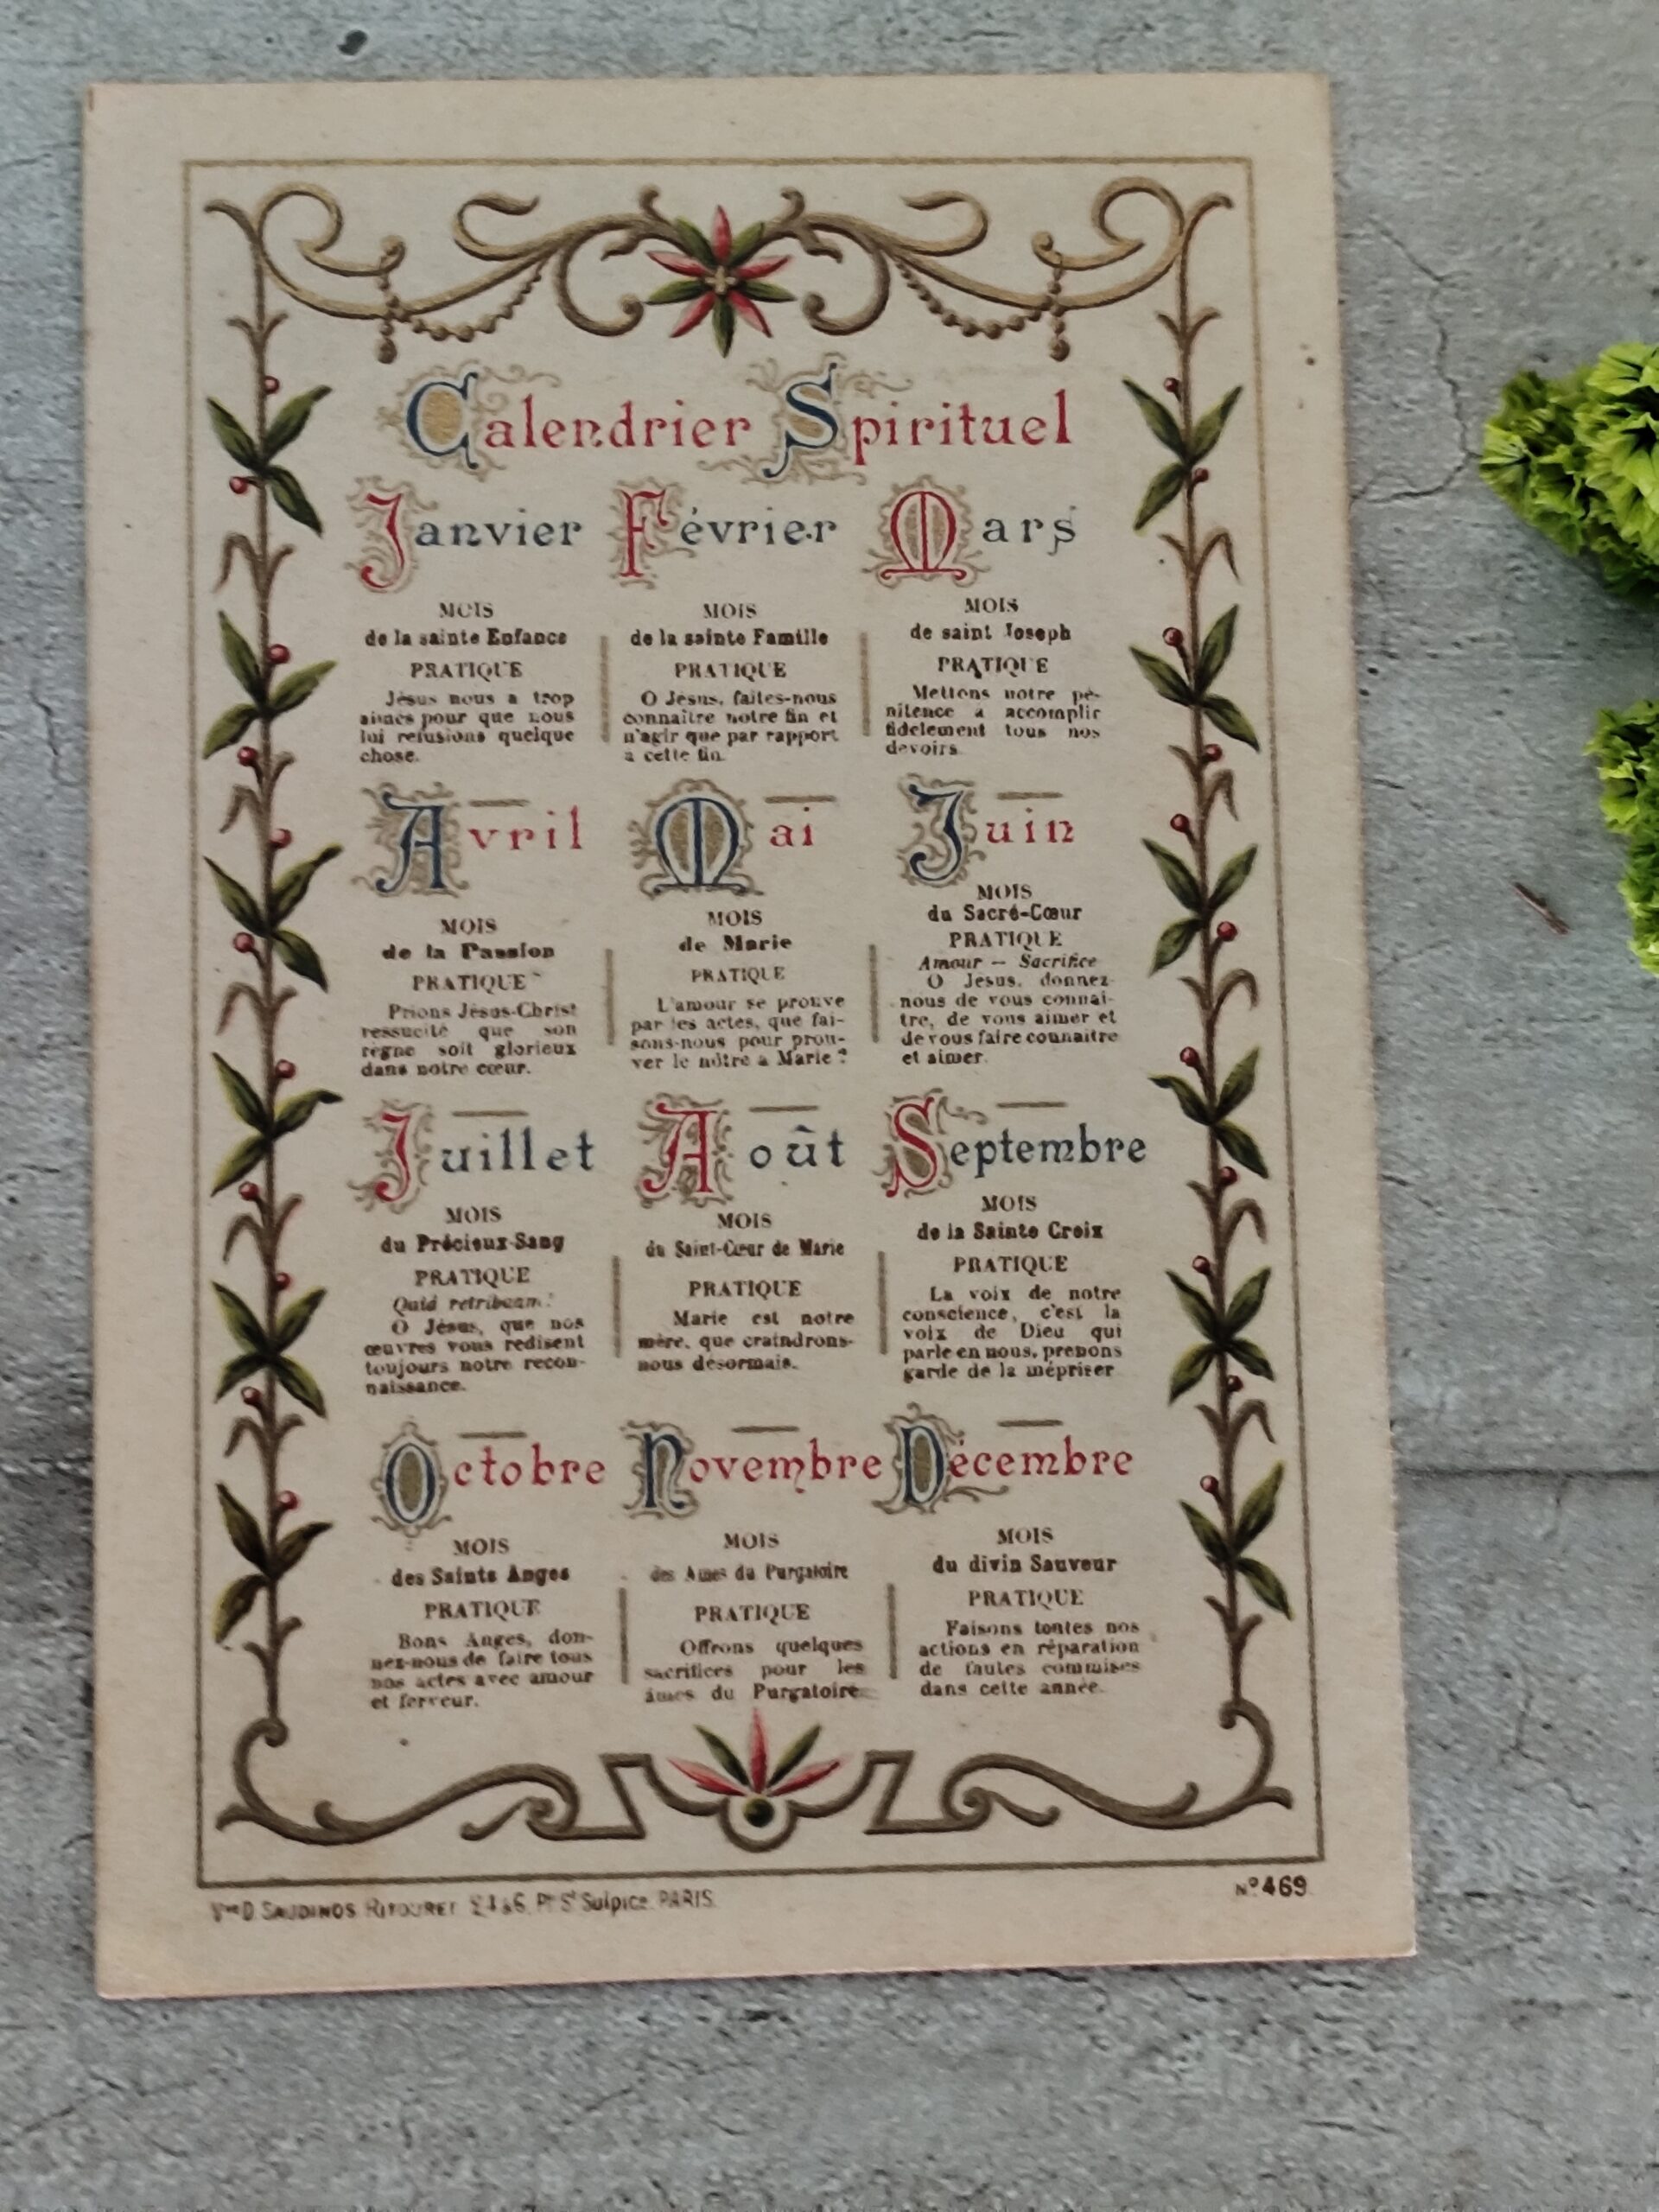 Calendrier Spirituel
Janvier
MOIS
de la sainte Enfance
PRATIQUE
Jésus nous a trop
aimés pour que nous
lui refusions quelque
chose.
Février
MOIS
de la sainte Famille
PRATIQUE
O Jésus, faites-nous
connaître notre fin et
n'agir que par rapport
à cette fin.
Mars
MOIS
de saint Joseph
PRATIQUE
Mettons notre pé-
nitence à accomplir
fidèlement tous nos
devoirs.
Avril
MOIS
de la Passion
PRATIQUE
Prions Jésus-Christ
ressucité que son
règne soit glorieux
dans notre cœur.
Mai
MOIS
de Marie
PRATIQUE
L'amour se prouve
par les actes, que fai-
sons-nous pour prou-
ver le nôtre à Marie ?
Juin
MOIS
du Sacré-Cœur
PRATIQUE
Amour — Sacrifice
O Jésus, donnez-
nous de vous connaî-
tre, de vous aimer et
de vous faire connaître
et aimer.
Juillet
MOIS
du Précieux-Sang
PRATIQUE
Quid retribuam!
O Jésus, que nos
œuvres vous redisent
toujours notre recon-
naissance.
Août
MOIS
du Saint-Cœur de Marie
PRATIQUE
Marie est notre
mère, que craindrons-
nous désormais.
Septembre
MOIS
de la Sainte Croix
PRATIQUE
La voix de notre
conscience, c'est la
voix de Dieu qui
parle en nous, prenons
garde de la mépriser
Octobre
MOIS
des Saints Anges
PRATIQUE
Bons Anges, don-
nez-nous de faire tous
nos actes avec amour
et ferveur.
Novembre
MOIS
des Ames du Purgatoire
PRATIQUE
Offrons quelques
sacrifices pour les
âmes du Purgatoire.
Décembre
MOIS
du divin Sauveur
PRATIQUE
Faisons toutes nos
actions en réparation
de fautes commises
dans cette année.
Vve D. SAUDINOS RITOURET Pl. St Sulpice. PARIS.
No 469